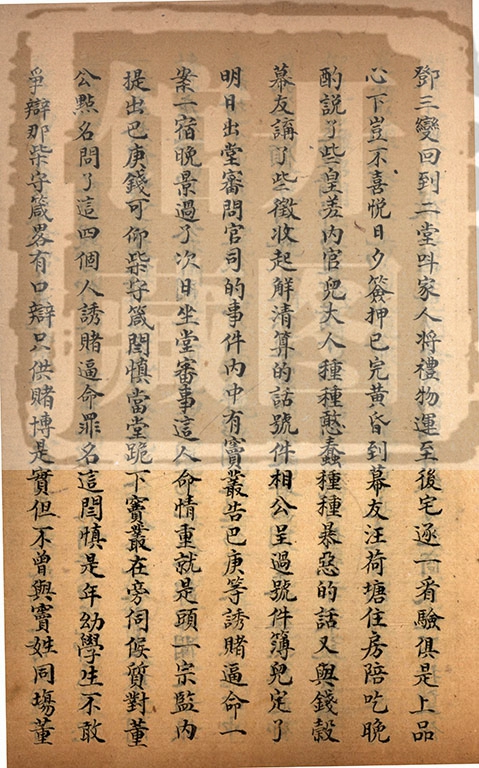 鄧三變回到二堂叫家人將禮物運至後宅逐一看驗俱是上品
心下豈不喜悅日夕簽押已完黃昏到幕友汪荷塘住房陪吃晚
酌說了些皇差內官兒大人種種憨蠢種種暴惡的話又與錢穀
幕友講了些徵收起解清算的話號件相公呈過號件簿兒定了
明日出堂審問官司的事件內中有竇叢告巴庚等誘賭逼命一
案一宿晚景過了次日坐堂審事這人命情重就是頭一宗監內
提出巴庚錢可仰柴守箴閆慎當堂跪下竇叢在旁伺候質對董
公點名問了這四個人誘賭逼命罪名這閆慎是年幼學生不敢
爭辯那柴守箴畧有口辯只供賭博是實但不曾與竇姓同塲董